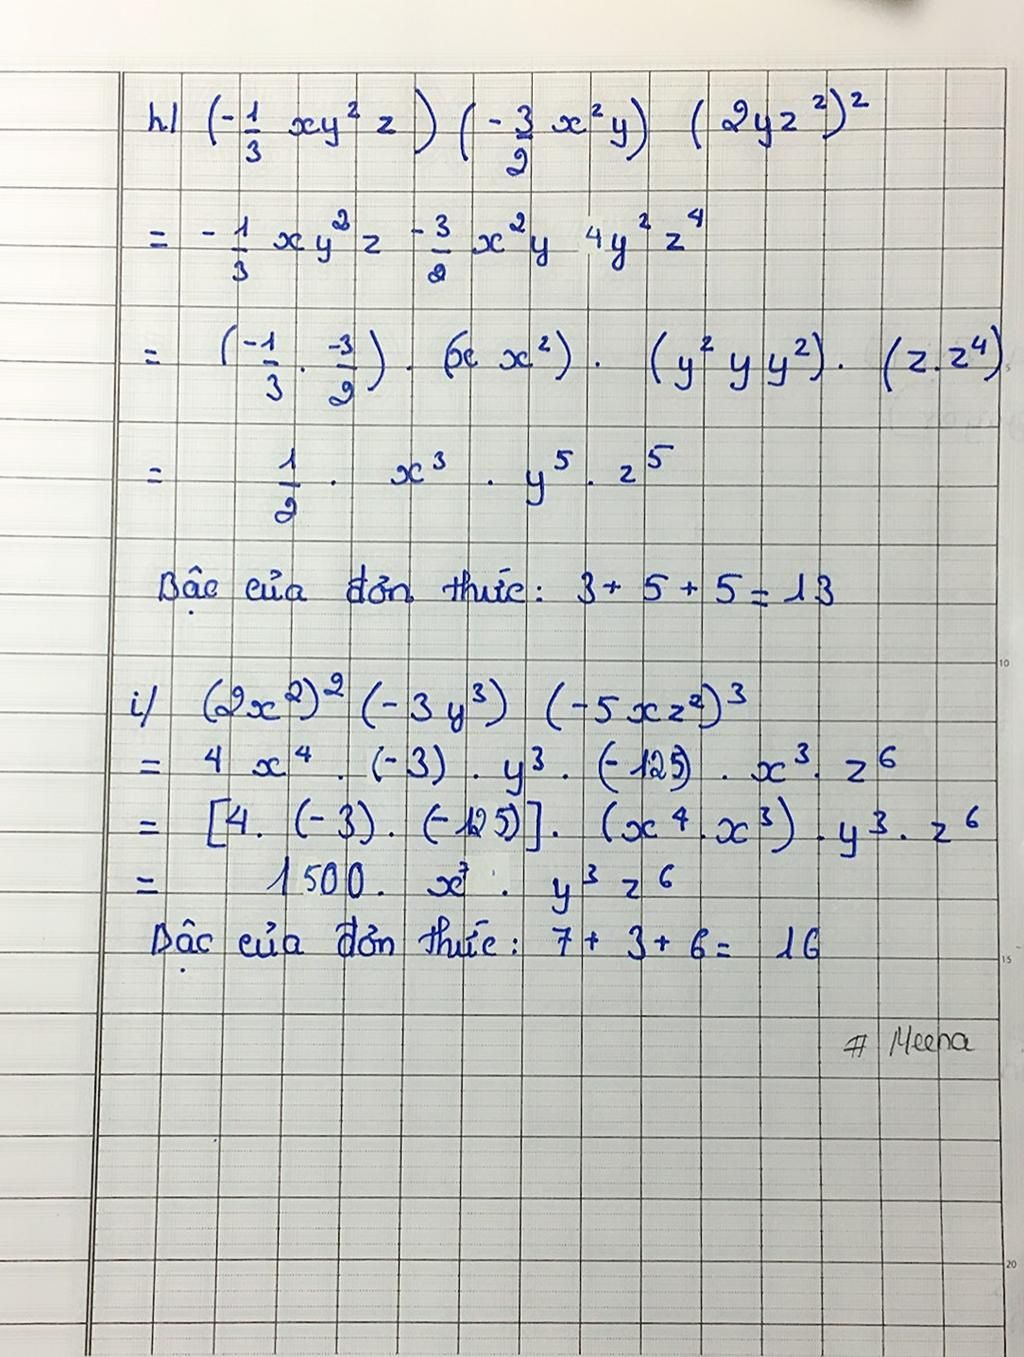 h/ (-1/3 xy² z) (-3/2 x²y) (2yz²)²
= -1/3 xy²z -3/2 x²y 4y²z⁴
= (-1/3 . -3/2) . (x x²) . (y² y y²) . (z.z⁴)
= 1/2 . x³ . y⁵ . z⁵
Bậc của đơn thức: 3 + 5 + 5 = 13
i/ (2x²)² (-3y³) (-5xz²)³
= 4x⁴ . (-3) . y³ . (-125) . x³ . z⁶
= [4. (-3) . (-125)] . (x⁴.x³) . y³ . z⁶
= 1500. x⁷ . y³ z⁶
Bậc của đơn thức: 7 + 3 + 6 = 16
# Meena
5
10
15
20